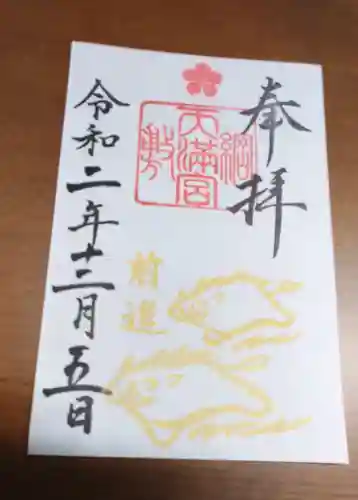 奉拝
綱敷天満宮
前進
令和二年十二月五日